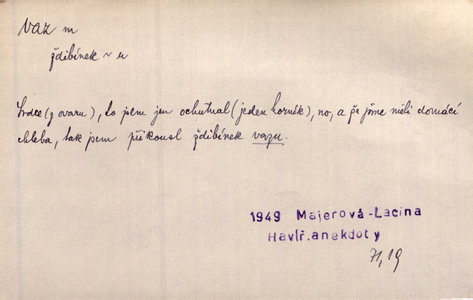 vaz m
ždibínek ~ u
Srdce (z ovaru), to jsem jen ochutnal (jeden horník), no, a že jsme měli domácí
chleba, tak jsem přikousl ždibínek vazu.
1949 Majerová-Lacina
Havíř. anekdoty
71,19